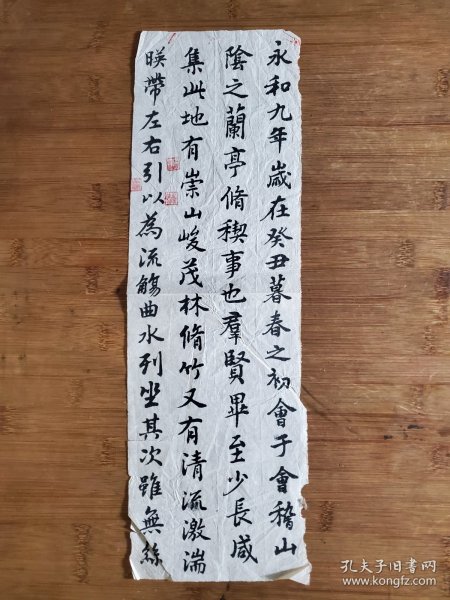 永和九年歲在癸丑暮春之初會于會稽山
陰之蘭亭脩稧事也羣賢畢至少長咸
集此地有崇山峻茂林脩竹又有清流激湍
暎帶左右引以為流觴曲水列坐其次雖無絲
孔夫子旧书网
www.kongfz.com